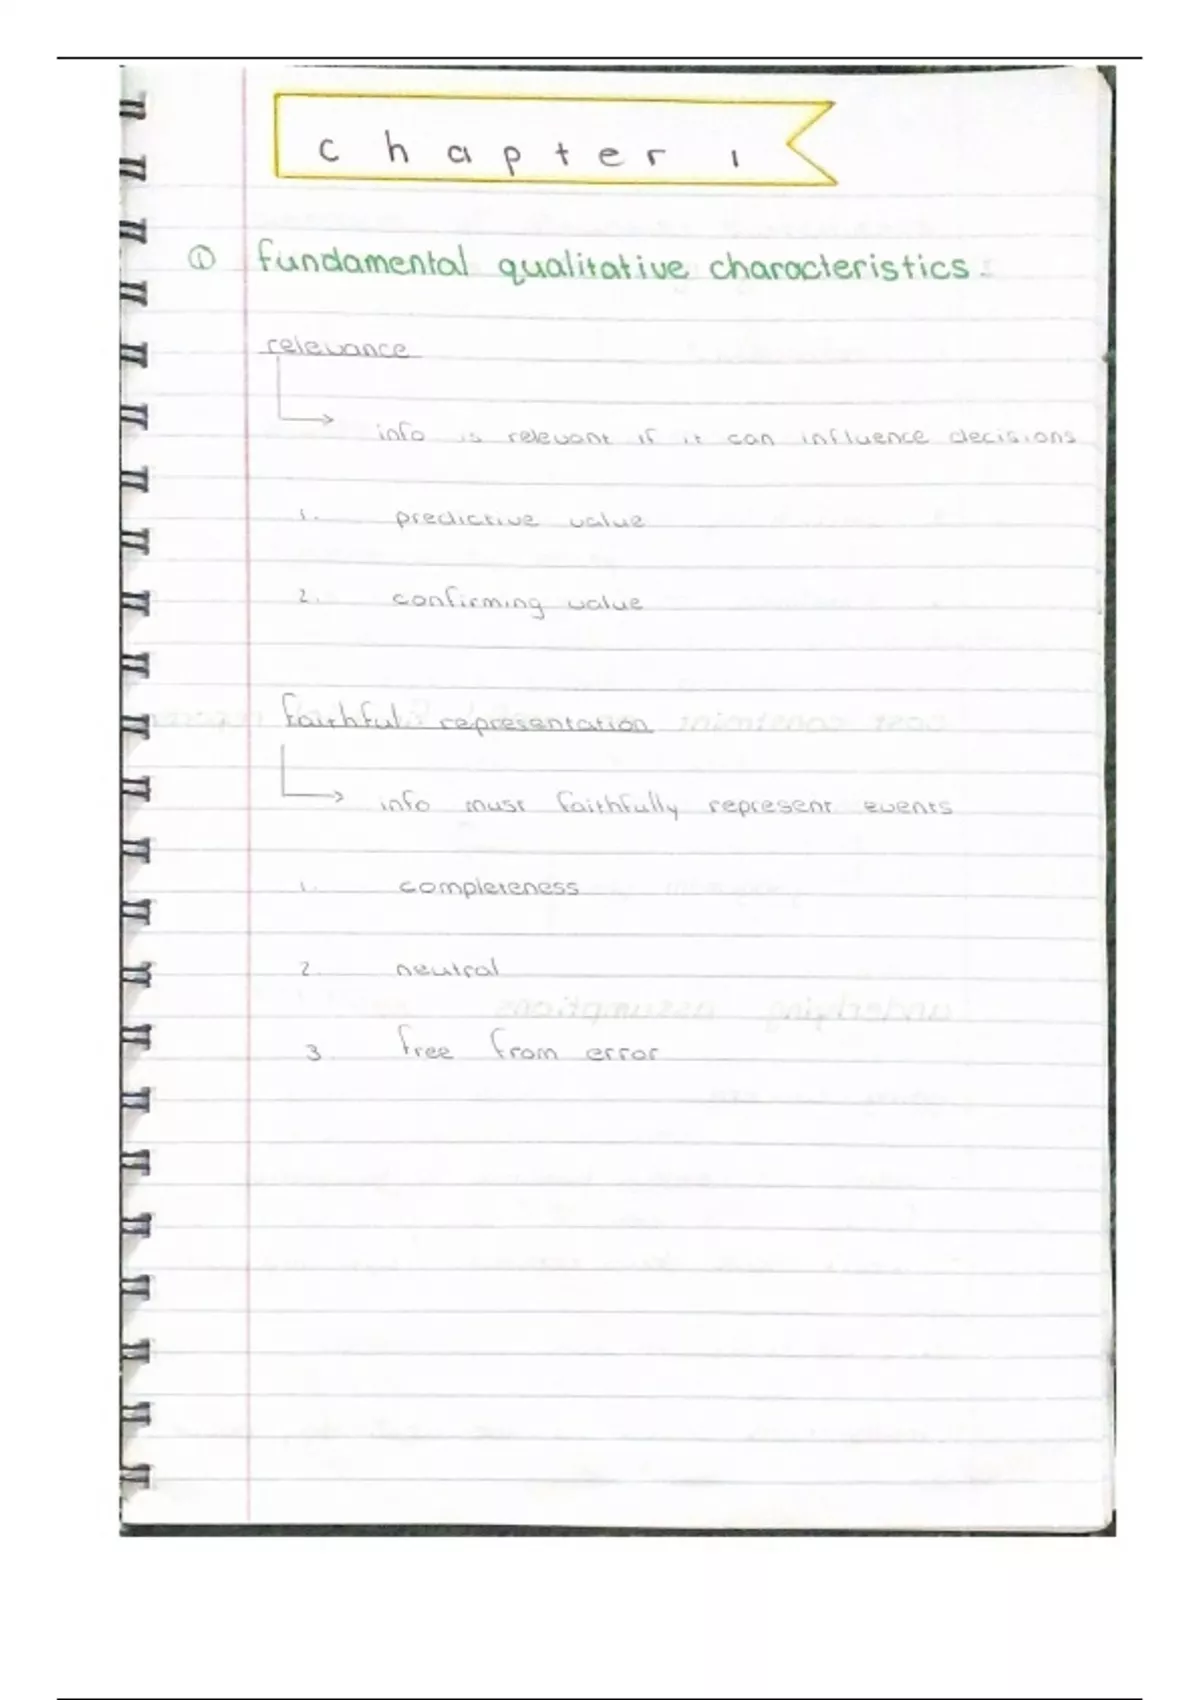 chapter 1
① fundamental qualitative characteristics.
relevance
info is relevant if it can influence decisions
1. predictive value
2. confirming value
faithful representation
info must faithfully represent events
1. completeness
2. neutral
3. free from error